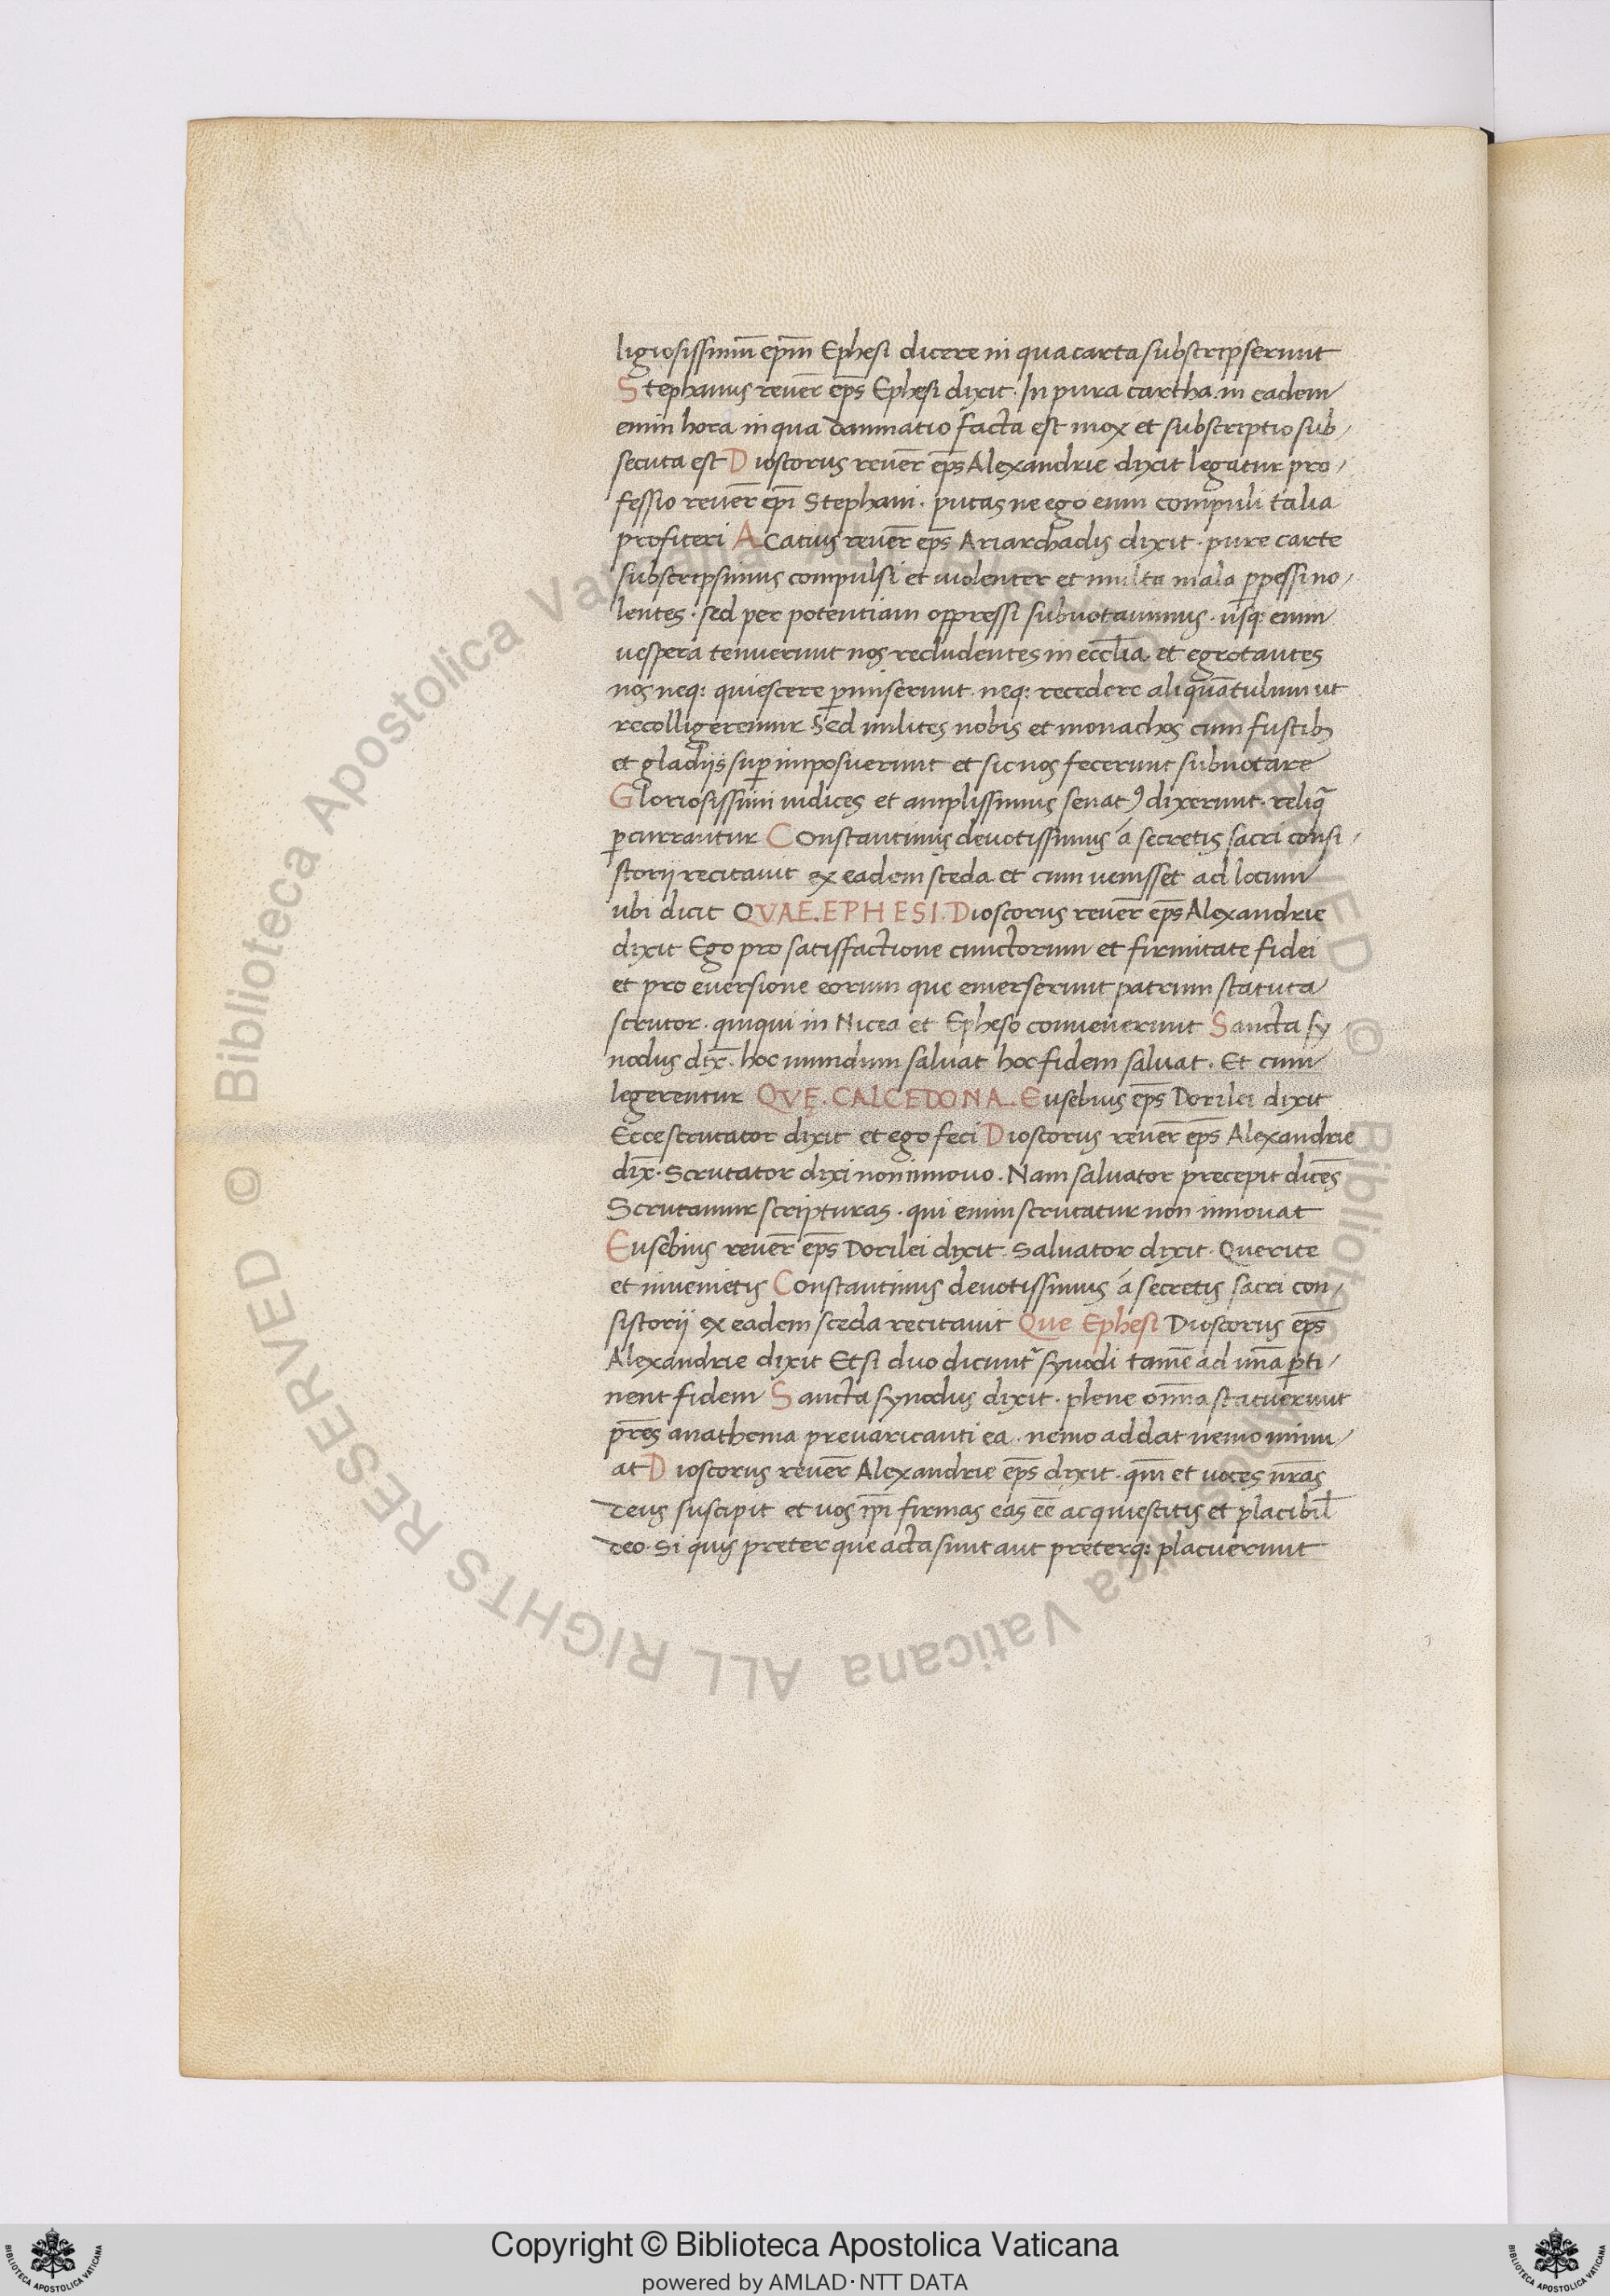 ligiosissimū ep̄m Ephesi dicere in qua carta subscripserunt
Stephanus reuer̄ ep̄s Ephesi dixit · In pura cartha · in eadem
enim hora in qua damnatio facta est mox et subscriptio sub
secuta est Dioscorus reuer̄ ep̄s Alexandrie dixit legatur pro
fessio reuer̄ ep̄i Stephani · putas ne ego eum compuli talia
profiteri Acatius reuer̄ ep̄s Ariarchadis dixit · pure carte
subscripsimus compulsi et uiolenter et multa mala ꝑpessi no
lentes · sed per potentiam oppressi subnotauimus · usq: enim
uespera tenuerunt nos recludentes in eccl̄ia et egrotantes
nos neq: quiescere ꝑmiserunt neq: recedere aliquātulum ut
recolligeremur Sed milites nobis et monachos cum fustibꝫ
et gladijs suꝑimposuerunt et sic nos fecerunt subnotare
Gloriosissimi iudices et amplissimus senatꝰ dixerunt · reliq̄
ꝑcurrantur Constantinus deuotissimus á secretis sacri consi
storij recitauit ex eadem sceda et cum uenisset ad locum
ubi dicit QVAE.EPHESI. Dioscorus reuer̄ ep̄s Alexandrie
dixit Ego pro satisfactione cunctorum et firmitate fidei
et pro euersione eorum que emerserunt patrum statuta
scrutor · quiqui in Nicea et Epheso conuenerunt Sancta sy
nodus dix̄ · hoc mundum saluat hoc fidem saluat · Et cum
legerentur QVE. CALCEDONA Eusebius ep̄s Dorilei dixit
Ecce scrutator dixit et ego feci Dioscorus reuer̄ ep̄s Alexandrie
dix̄ · Scrutator dixi non innouo · Nam saluator precepit dicēs
Scrutamur scripturas · qui enim scrutatur non innouat
Eusebius reuer̄ ep̄s Dorilei dixit Saluator dixit · Querite
et inuenietis Constantinus deuotissimus á secretis sacri con
sistorij ex eadem sceda recitauit Que Ephesi Dioscorus ep̄s
Alexandrie dixit Etsi duo dicunt᷑ synodi tamē ad unā ꝑti
nent fidem Sancta synodus dixit · plene om̄a statuerunt
pr̄es anathema preuaricanti ea · nemo addat nemo minu
at Dioscorus reuer̄ Alexandrie ep̄s dixit · qm̄ et uoces nr̄as
deus suscipit et uos ip̄i firmas eas eē acquiescitis et placibil̄
deo · Si quis preter que acta sunt aut preterq: placuerunt
© Biblioteca Apostolica Vaticana ALL RIGHTS RESERVED © Biblioteca Apostolica Vaticana ALL RIGHTS RESERVED
Copyright © Biblioteca Apostolica Vaticana
powered by AMLAD·NTT DATA
BIBLIOTECA APOSTOLICA VATICANA
BIBLIOTECA APOSTOLICA VATICANA